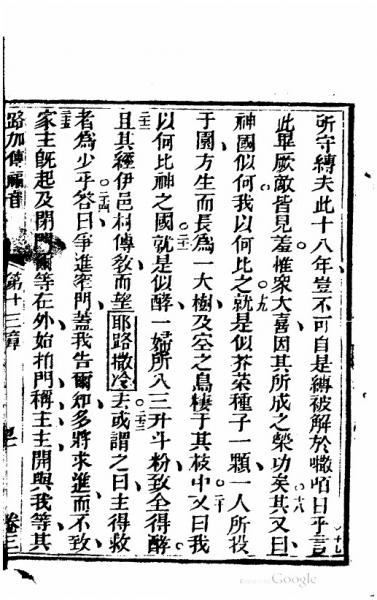 所守縛夫此十八年豈不可自是縛被解於𠻳咟日乎言
十七
此畢厥敵皆見羞惟衆大喜因其所成之榮功矣其又曰
十八
神國似何我以何比之就是似芥菜種子一顆一人所投
十九
于園方生而長爲一大樹及空之鳥棲于其枝中又曰我
二十
以何比神之國就是似酵一婦所入三升斗粉致全得酵
二一
且其經伊邑村傳敎而望耶路撒冷去或謂之曰主得救
二二
二三
者爲少乎荅曰爭進窄門蓋我告爾知多將求進而不致
二四
家主旣起及閉門爾等在外始拍門稱主主開與我等其
二五
路加傳福音
第十三章
卷三
Google